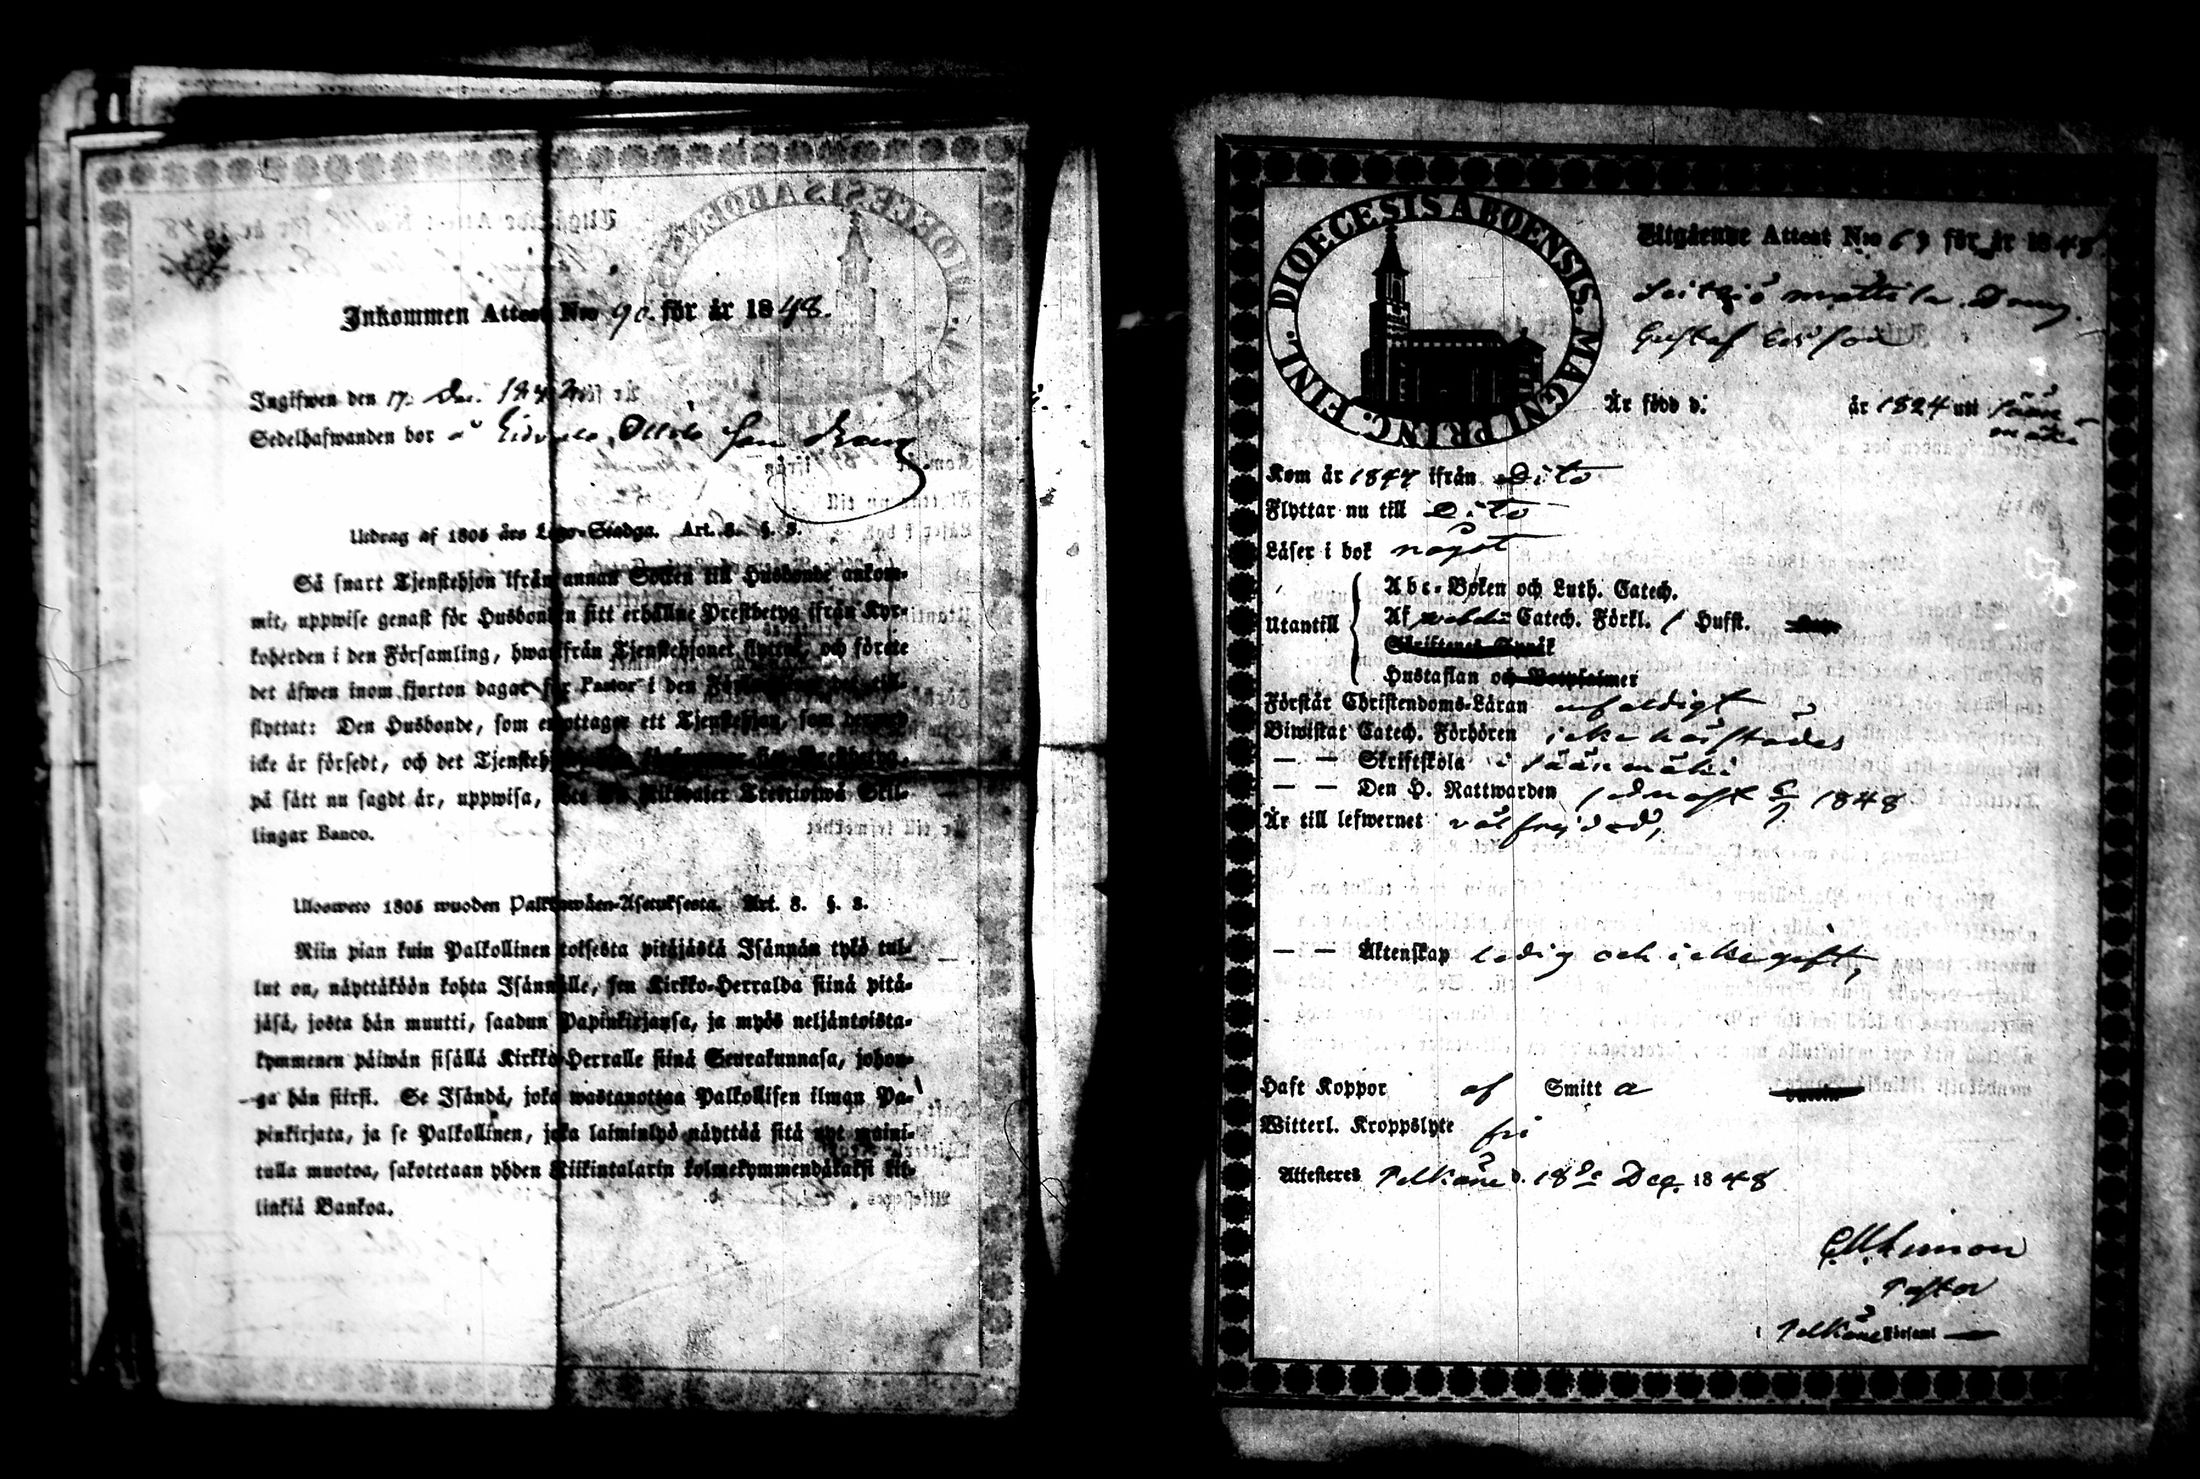 Inkommen Attest N:o 90. för år 1848.
Ingifwen den 17. Dec. 184
Sedelhafwanden bor å Ottila
Utdrag af 1805 års Lego-Stadga. Art. 8. §. 3.
Så snart Tjenstehjon ifrån annan Socken till Husbonde ankom-
mit, uppwise genast för Husbonden sitt erhållne Prestbetyg ifrån Kyr-
koherden i den Församling, hwarifrån Tjenstehjonet flyttat, och förete
det äfwen inom fjorton dagar för Pastor i den
flyttat: Den Husbonde, som emottager ett Tjenstehjon, som dermed
icke är försedt, och det Tjenstehjon
på sätt nu sagdt är, uppwisa, Tretiotwå Skil-
lingar Banco.
Ulosweto 1805 wuoden Palkkawäen-Asetuksesta. Art. 8. §. 3.
Niin pian kuin Palkollinen toisesta pitäjästä Isännän tykö tul-
lut on, näyttäköön kohta Isännälle, sen Kirkko-Herralda siinä pitä-
jäsä, josta hän muutti, saadun Papinkirjansa, ja myös neljäntoista-
kymmenen päiwän sisällä Kirkko-Herralle siinä Seurakunnasa, johon-
ga hän siirsi. Se Isändä, joka wastanottaa Palkollisen ilman Pa-
pinkirjata, ja se Palkollinen, joka laiminlyö näyttää sitä nyt maini-
tulla muotoa, sakotetaan yhden Riikintalarin kolmekymmendäkaksi kil-
linkiä Bankoa.
DIOECESIS ABOENSIS. MAGNI PRINC. FINL.
Utgående Attest N:o 69 för år 1848
Mattila Dreng
Gustaf Ersson
Är född d. år 1824 uti Sääx
mäki
Kom år 1847 ifrån Dito
Flyttar nu till Dito
Läser i bok något
Utantill
Abc-Boken och Luth. Catech.
Af Catech. Förkl. / Hufst.
Skriftenes Språk
Hustaflan och
Förstår Christendoms-Läran enfaldigt
Biwistat Catech. Förhören icke härstädes
— — Skriftskola i Sääxmäki
— — Den H. Nattwarden sednast 1848
Är till lefwernet välfrejdad,
— — Äktenskap ledig och icke gift,
Haft Koppor af Smitt a
Witterl. Kroppslyte fri
Attesteras Pelkäne d. 18de Dec. 1848
Pastor
i Pelkäne Församl